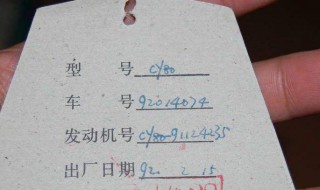 型 号 CY80
车 号 92014074
发动机号 CY80-91124235
出厂日期 92 2 15